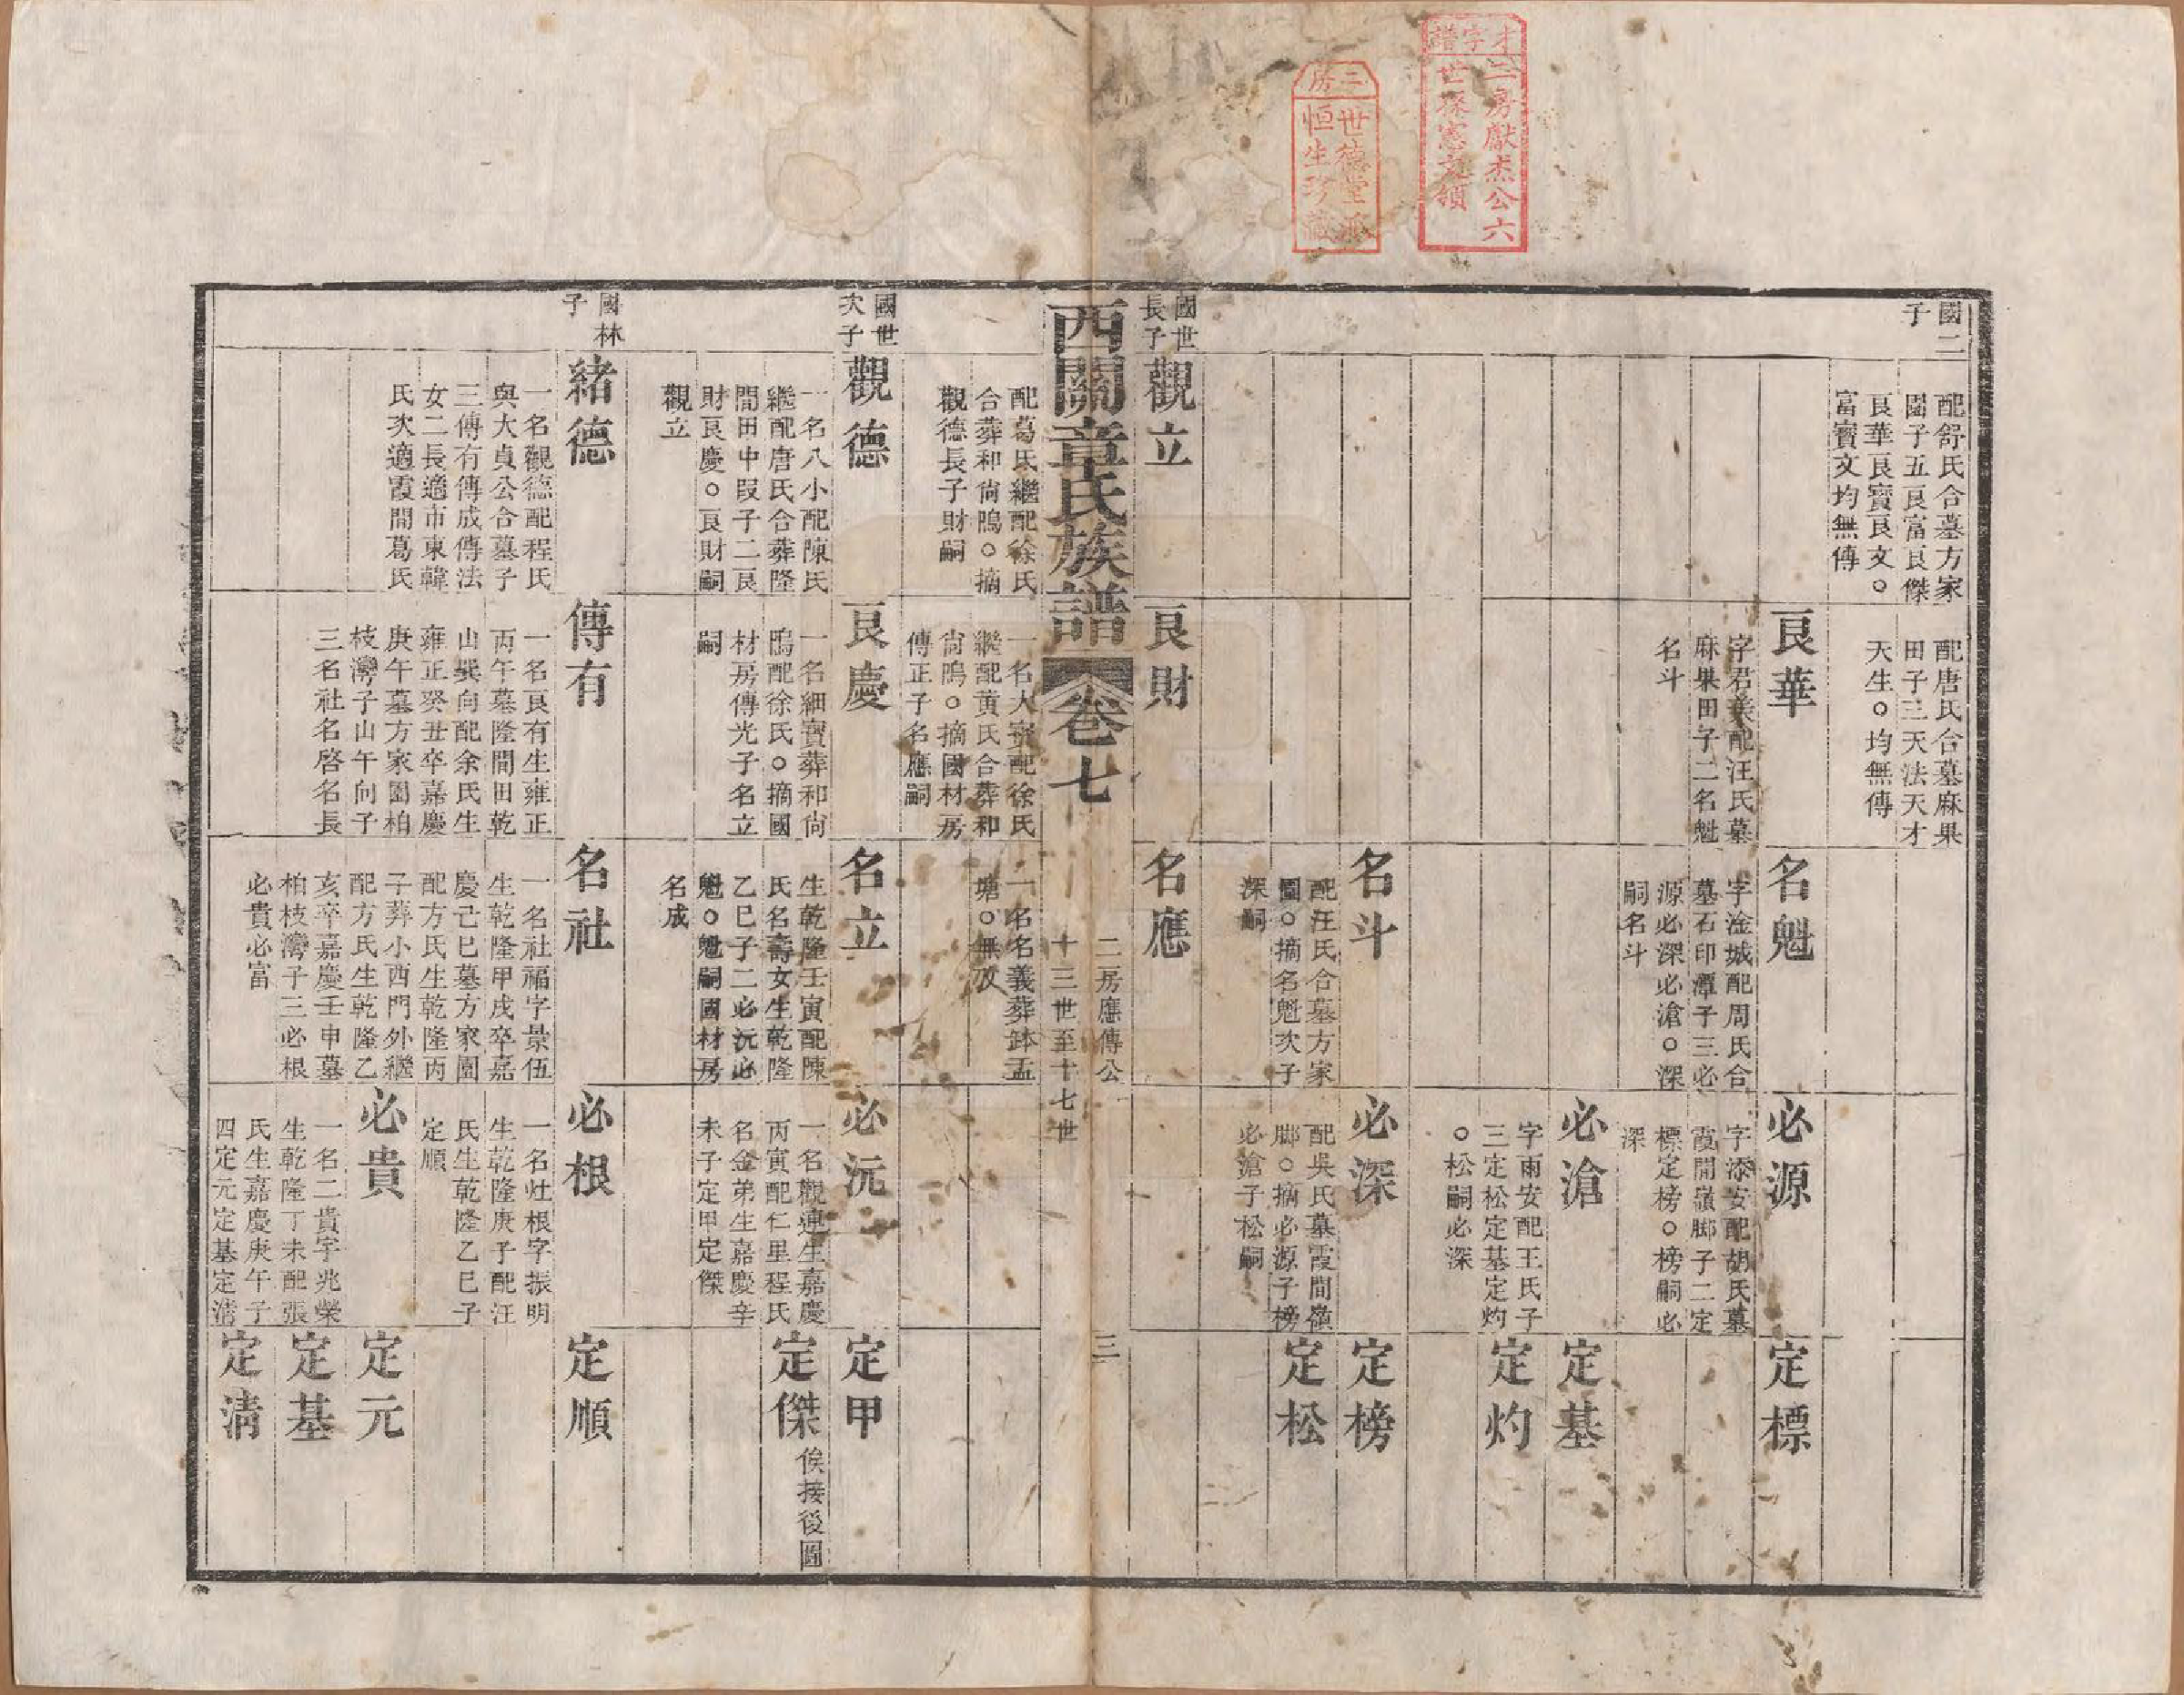 才字譜
二房獻杰公六
世孫憲文領
三房
世德堂派
恒生珍藏
國二
子
配舒氏合墓方家
園子五艮富艮傑
艮華艮寶艮文○
富寶文均無傳
配唐氏合墓麻果
田子三天法天才
天生○均無傳
艮華
字君美配汪氏墓
麻果田子二名魁
名斗
名魁
字淦城配周氏合
墓石印潭子三必
源必深必滄○深
嗣名斗
必源
字添安配胡氏墓
霞間嶺脚子二定
標定榜○榜嗣必
深
定標
必滄
字雨安配王氏子
三定松定基定灼
○松嗣必深
定基
定灼
名斗
配汪氏合墓方家
園○摘名魁次子
深嗣
必深
配吳氏墓霞間嶺
脚○摘必源子榜
必滄子松嗣
定榜
定松
國世
長子
觀立
艮財
名應
西關章氏族譜
卷七
二房應傳公
十三世至十七世
三
配葛氏繼配徐氏
合葬和尙塢○摘
觀德長子財嗣
一名大寶配徐氏
繼配黄氏合葬和
尙塢○摘國材房
傳正子名應嗣
一名名義葬鉢盂
塘○無攷
國世
次子
觀德
一名八小配陳氏
繼配唐氏合葬隆
間田中叚子二艮
財艮慶○艮財嗣
觀立
艮慶
一名細寶葬和尙
塢配徐氏○摘國
材房傳光子名立
嗣
名立
生乾隆壬寅配陳
氏名壽女生乾隆
乙巳子二必沅必
魁○魁嗣國材房
名成
必沅
一名觀連生嘉慶
丙寅配仁里程氏
名金弟生嘉慶辛
未子定甲定傑
定甲
定傑
俟接後圖
國林
子
緒德
一名觀德配程氏
與大貞公合墓子
三傳有傳成傳法
女二長適市東韓
氏次適霞間葛氏
傳有
一名艮有生雍正
丙午墓隆間田乾
山巽向配余氏生
雍正癸丑卒嘉慶
庚午墓方家園柏
枝灣子山午向子
三名社名啓名長
名社
一名社福字景伍
生乾隆甲戌卒嘉
慶己巳墓方家園
配方氏生乾隆丙
子葬小西門外繼
配方氏生乾隆乙
亥卒嘉慶壬申墓
柏枝灣子三必根
必貴必富
必根
一名灶根字振明
生乾隆庚子配汪
氏生乾隆乙巳子
定順
定順
必貴
一名二貴字兆榮
生乾隆丁未配張
氏生嘉慶庚午子
四定元定基定淸
定元
定基
定淸